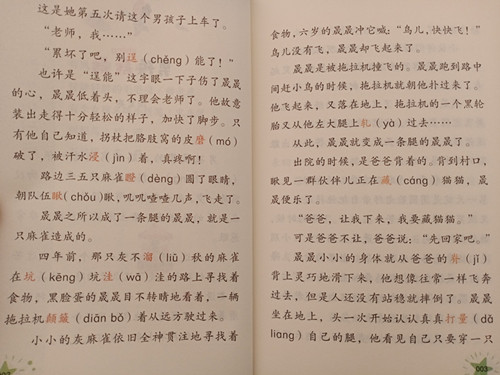 这是她第五次请这个男孩子上车了。
“老师，我……”
“累坏了吧，别逞（chěng）能了！”
也许是“逞能”这字眼一下子伤了晟晟
的心，晟晟低着头，不理会老师了。他故意
装出走得十分轻松的样子，加快了脚步。只
有他自己知道，拐杖把胳肢窝的皮磨（mó）
破了，被汗水浸（jìn）着，真疼啊！
路边三五只麻雀瞪（dèng）圆了眼睛，
朝队伍瞅（chǒu）瞅，叽叽喳喳几声，飞走了。
晟晟之所以成了一条腿的晟晟，就是一
只麻雀造成的。
四年前，那只灰不溜（liū）秋的麻雀
在坑（kēng）坑洼（wā）洼的路上寻找着
食物，黑脸蛋的晟晟目不转睛地看着，一辆
拖拉机颠簸（diān bǒ）着从远方驶过来。
小小的灰麻雀依旧全神贯注地寻找着
食物，六岁的晟晟冲它喊：“鸟儿，快快飞！”
鸟儿没有飞，晟晟却飞起来了。
晟晟是被拖拉机撞飞的。晟晟跑到路中
间赶小鸟的时候，拖拉机就朝他扑过来了。
他飞起来，又落在地上，拖拉机的一个黑轮
胎又从他左大腿上轧（yà）过去……
从此，晟晟就变成一条腿的晟晟了。
出院的时候，是爸爸背着的。背到村口，
瞅见一群伙伴儿正在藏（cáng）猫猫，晟
晟便乐了。
“爸爸，让我下来，我要藏猫猫。”
可是爸爸不让，爸爸说：“先回家吧。”
晟晟小小的身体就从爸爸的脊（jǐ）
背上灵巧地滑下来，他想像往常一样飞奔
过去，但是人还没有站稳就摔倒了。晟晟
坐在地上，头一次开始认认真真打量（dǎ
liang）自己的腿，他看见自己只要穿一只
003